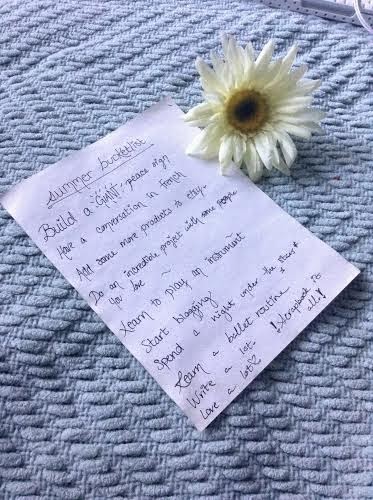 Summer bucketlist
Build a GIANT peace sign
Have a conversation in French
Add some more products to etsy
Do an incredible project with some people
you love
Learn to play an instrument
Start blogging
Spend a night under the stars
Learn a ballet routine
Write a lot.
Love a lot ♡
! Scrapbook it
all!